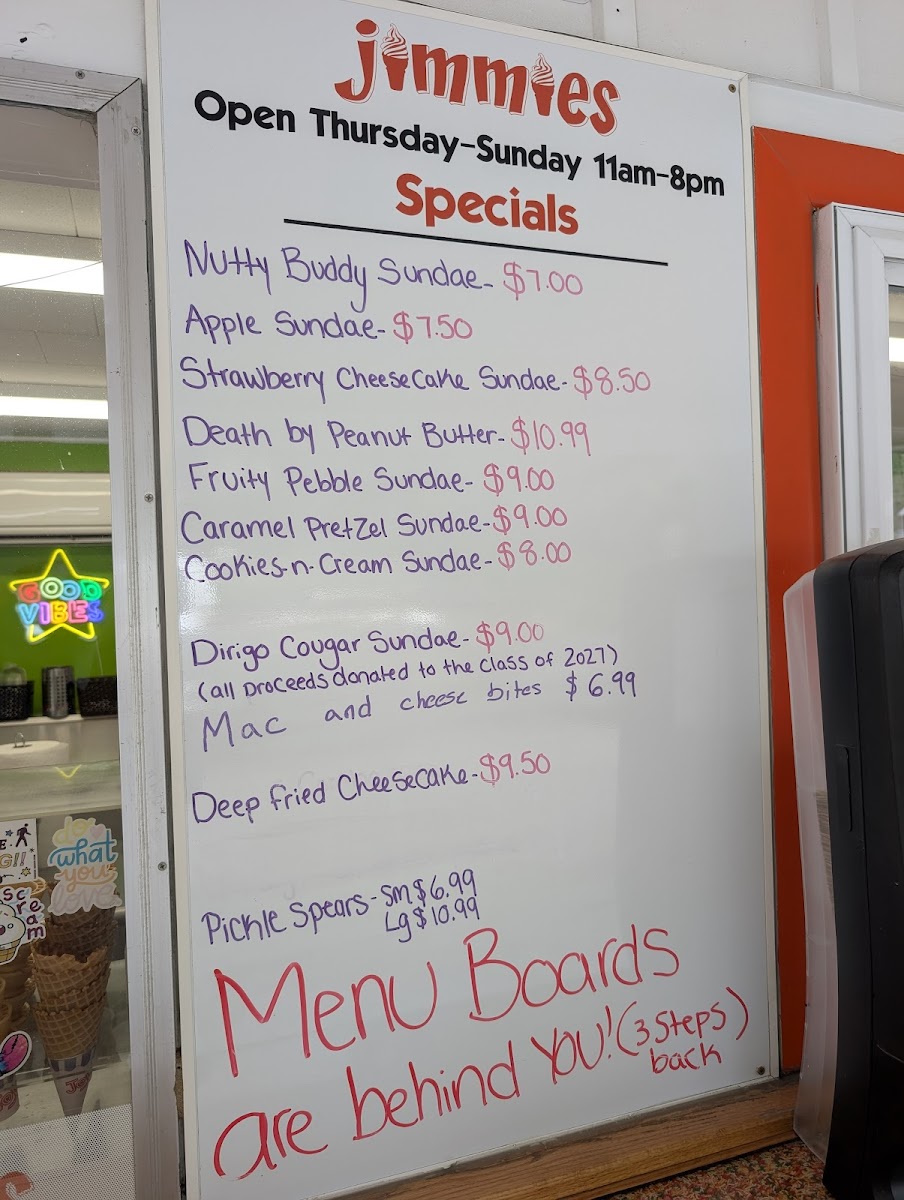 jimmies
Open Thursday-Sunday 11am-8pm
Specials
Nutty Buddy Sundae- $7.00
Apple Sundae- $7.50
Strawberry CheeseCake Sundae- $8.50
Death by Peanut Butter- $10.99
Fruity Pebble Sundae- $9.00
Caramel Pretzel Sundae- $9.00
Cookies-n-Cream Sundae- $8.00
Dirigo Cougar Sundae- $9.00
(all Proceeds donated to the class of 2027)
Mac and cheese bites $6.99
Deep fried Cheesecake- $9.50
Pickle Spears- Sm $6.99
Lg $10.99
Menu Boards
are behind YOU! (3 Steps
back)
GOOD
VIBES
do
what
you
love
scream